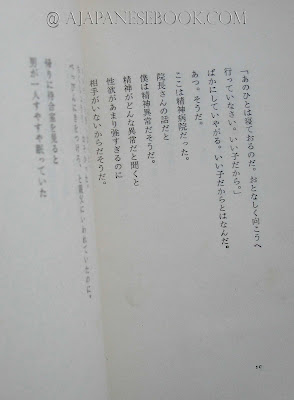 @ AJAPANESEBOOK.COM
「あのひとは寝ておるのだ。おとなしく向こうへ
行っていなさい。いい子だから。」
ばかにしていやがる。いい子だからとはなんだ。
あっ。そうだ。
ここは精神病院だった。
院長さんの話だと
僕は精神異常だそうだ。
精神がどんな異常だと聞くと
性欲があまり強すぎるのに
相手がいないからだそうだ。
帰りに待合室を見ると
男が一人すやすや眠っていた